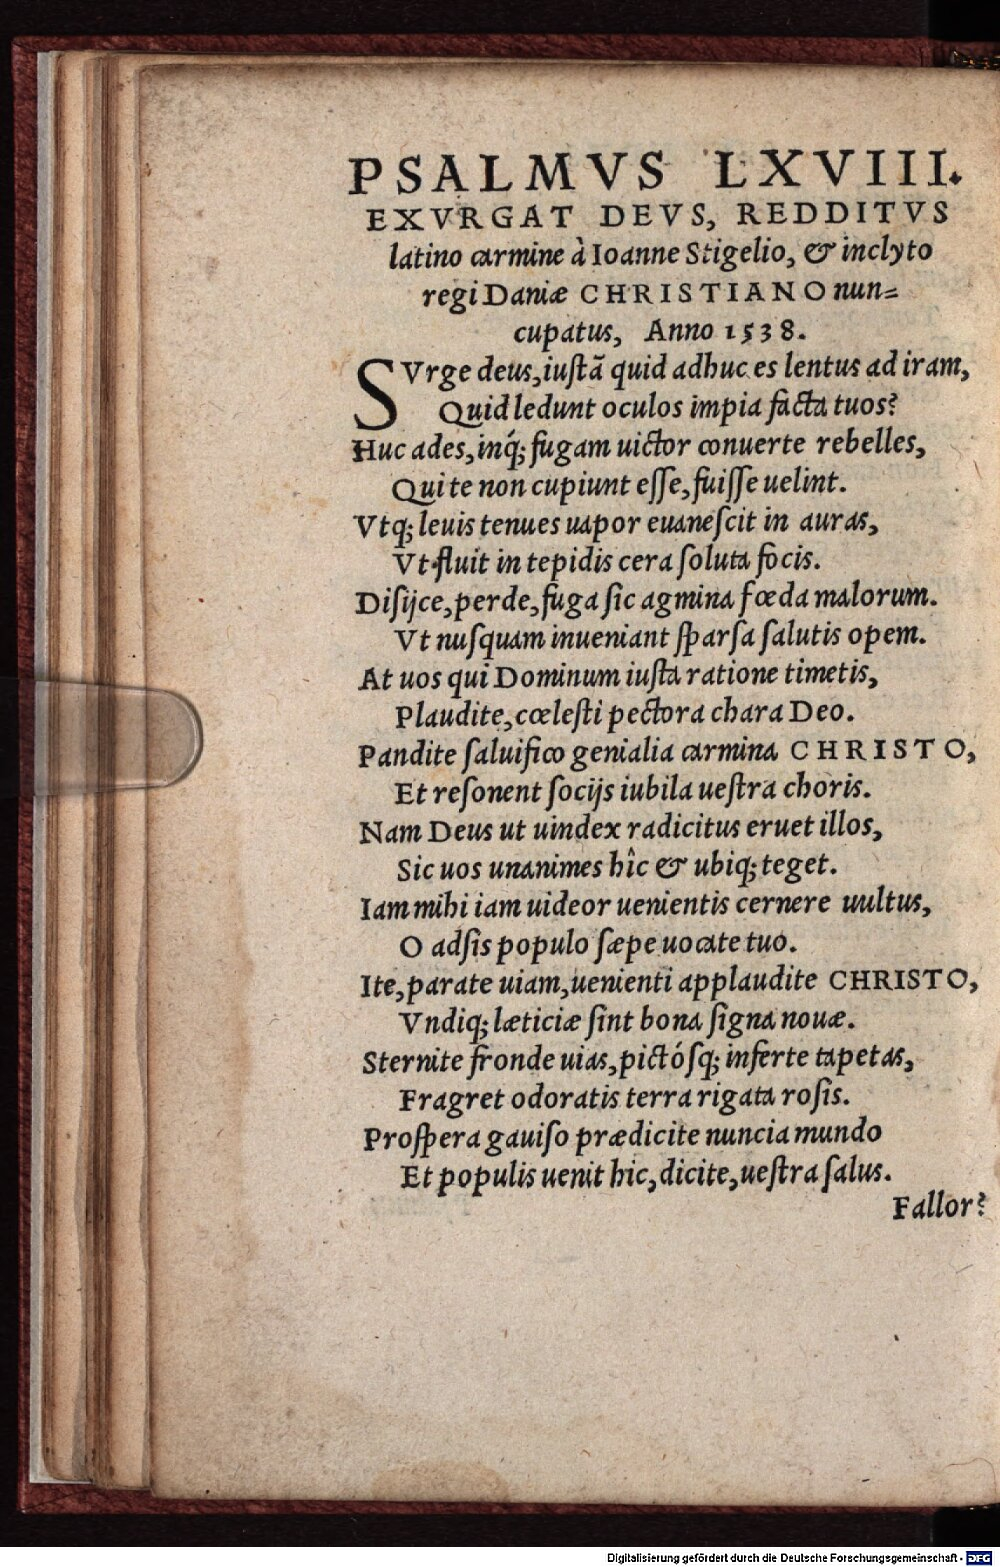 PSALMVS LXVIII.
EXVRGAT DEVS, REDDITVS
latino carmine à Ioanne Stigelio, & inclyto
regi Daniæ CHRISTIANO nun=
cupatus, Anno 1538.
SVrge deus, iuſtã quid adhuc es lentus ad iram,
Quid ledunt oculos impia facta tuos?
Huc ades, inq́; fugam uictor conuerte rebelles,
Qui te non cupiunt eſſe, fuiſſe uelint.
Vtq; leuis tenues uapor euaneſcit in auras,
Vt fluit in tepidis cera ſoluta focis.
Diſijce, perde, fuga ſic agmina fœda malorum.
Vt nuſquam inueniant ſparſa ſalutis opem.
At uos qui Dominum iuſta ratione timetis,
Plaudite, cœleſti pectora chara Deo.
Pandite ſaluifico genialia carmina CHRISTO,
Et reſonent ſocijs iubila ueſtra choris.
Nam Deus ut uindex radicitus eruet illos,
Sic uos unanimes hîc & ubiq; teget.
Iam mihi iam uideor uenientis cernere uultus,
O adſis populo ſæpe uocate tuo.
Ite, parate uiam, uenienti applaudite CHRISTO,
Vndiq; læticiæ ſint bona ſigna nouæ.
Sternite fronde uias, pictóſq; inferte tapetas,
Fragret odoratis terra rigata roſis.
Proſpera gauiſo prædicite nuncia mundo
Et populis uenit hic, dicite, ueſtra ſalus.
Fallor?
Digitalisierung gefördert durch die Deutsche Forschungsgemeinschaft - DFG